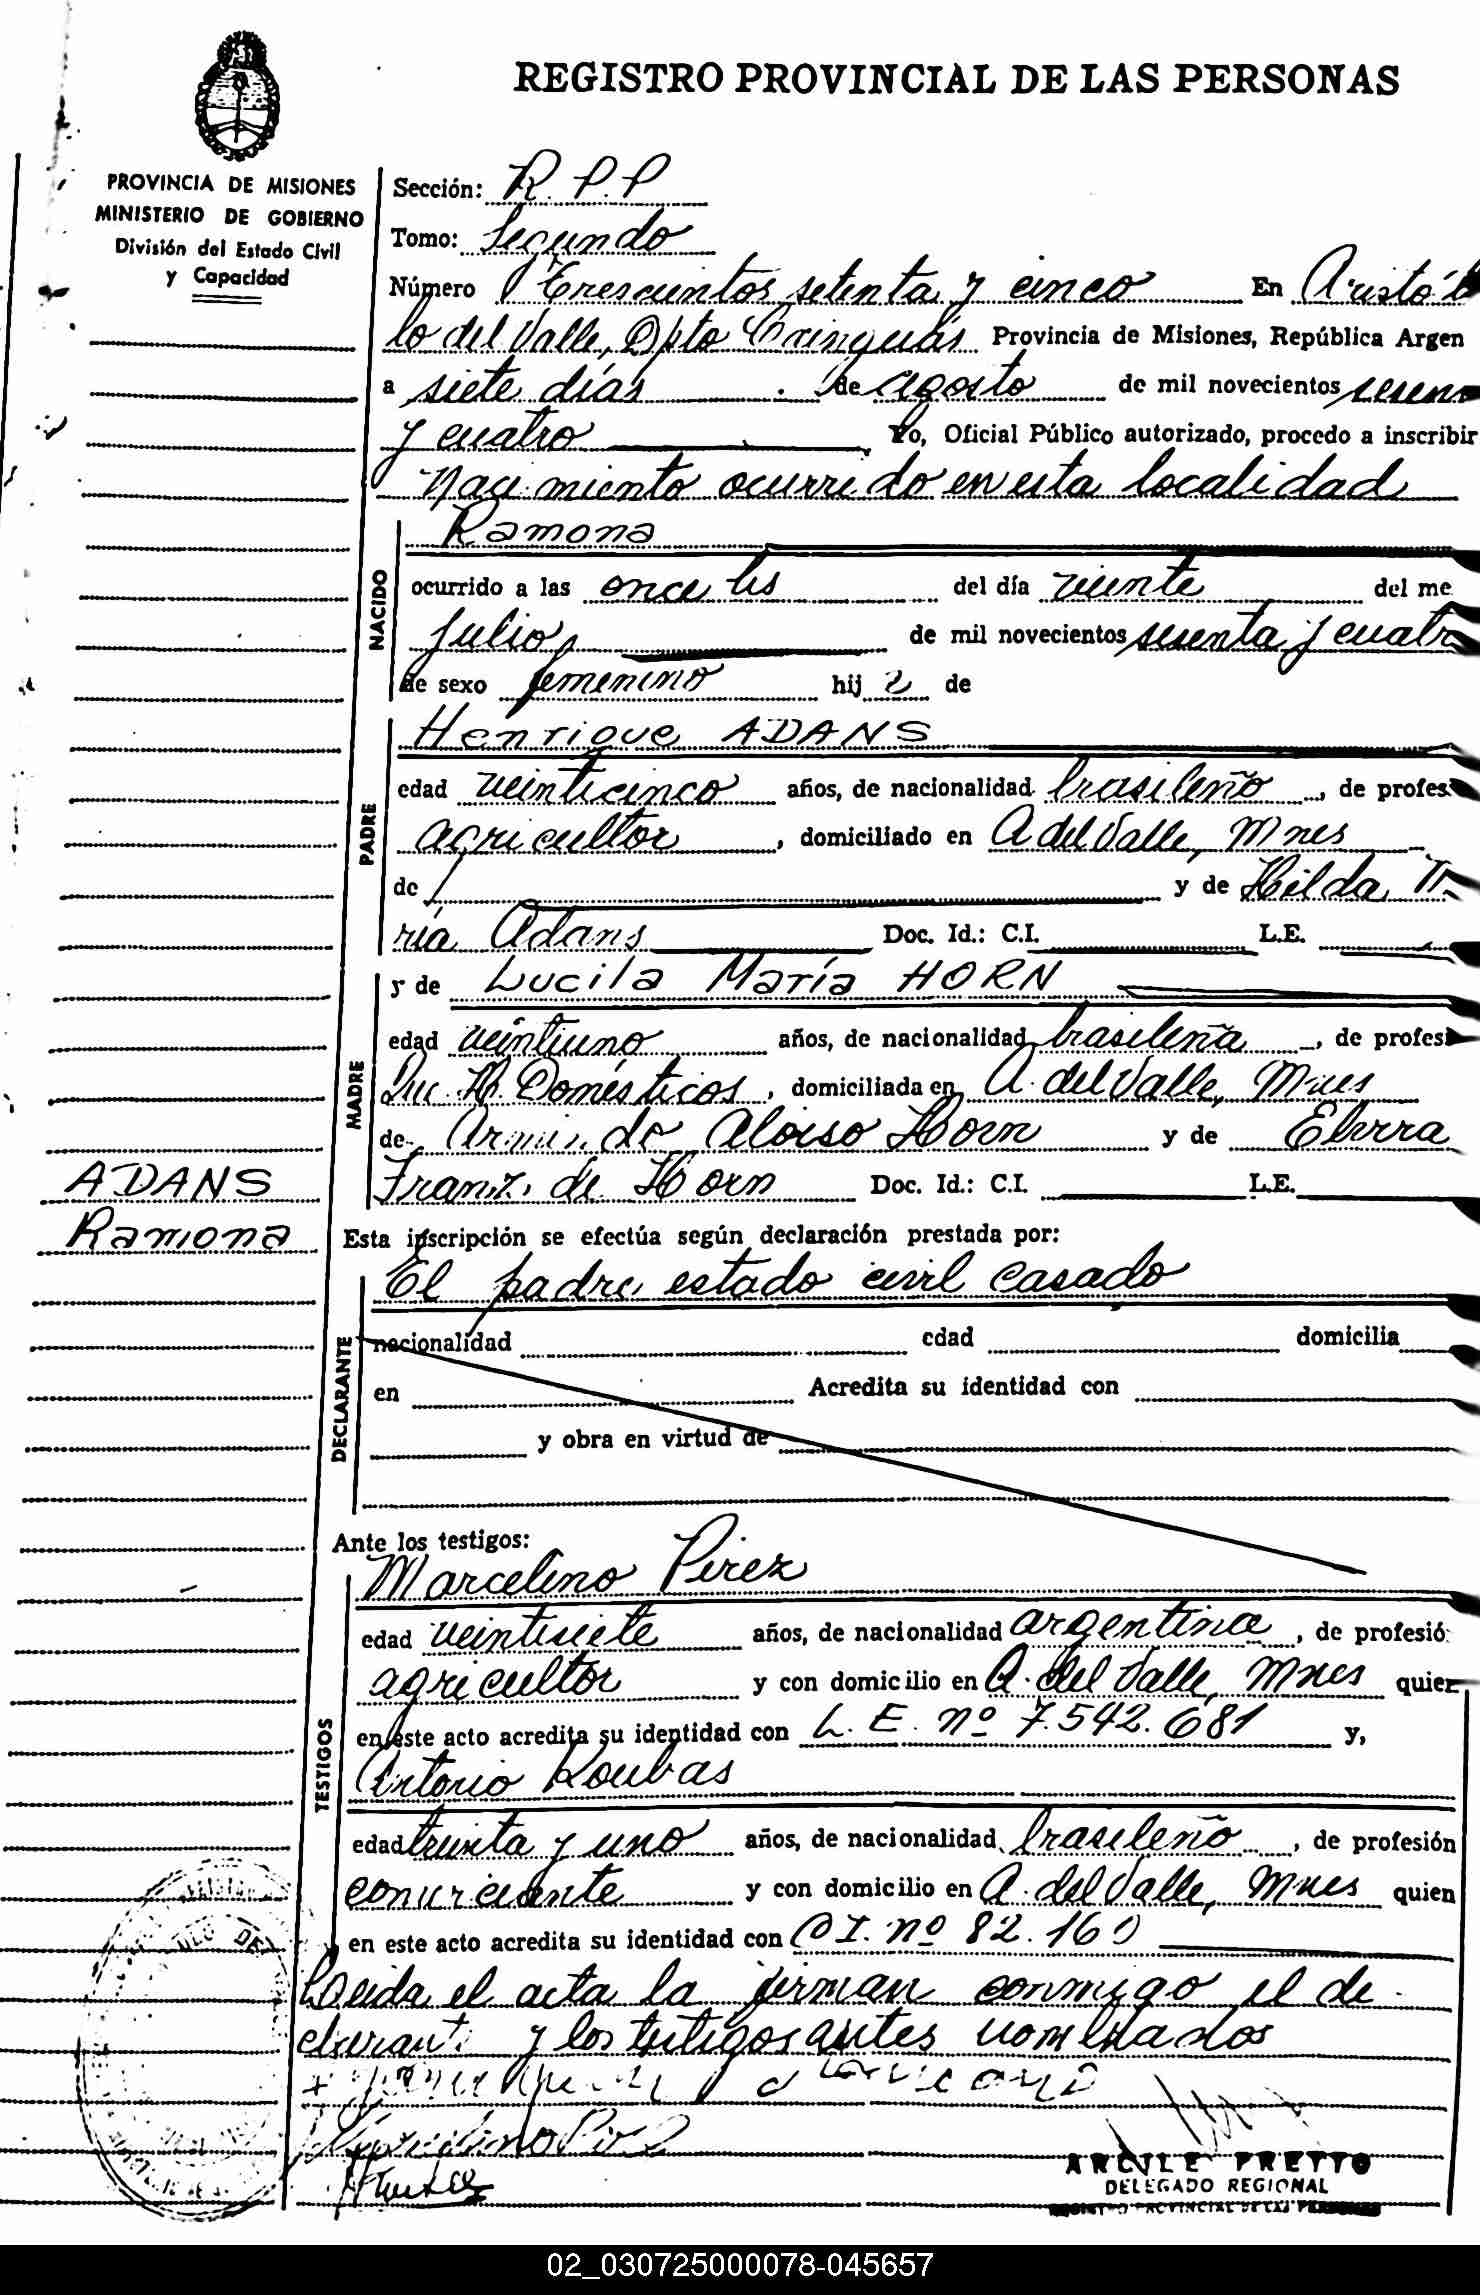 REGISTRO PROVINCIAL DE LAS PERSONAS
PROVINCIA DE MISIONES
MINISTERIO DE GOBIERNO
División del Estado Civil
y Capacidad
Sección: R.P.P
Tomo: Segundo
Número Trescientos setenta y cinco En Aristób
lo del Valle, Dpto Cainguás Provincia de Misiones, República Argen
a siete días de agosto de mil novecientos sesen
y cuatro Yo, Oficial Público autorizado, procedo a inscribir
Nacimiento ocurrido en esta localidad
NACIDO
Ramona
ocurrido a las once hs del día veinte del me
julio de mil novecientos sesenta y cuatr
de sexo femenino hij a de
PADRE
Henrique ADANS
edad veinticinco años, de nacionalidad brasileño, de profes
agricultor, domiciliado en A del Valle, Mnes
de y de Hilda
ría Adans Doc. Id.: C.I. L.E.
MADRE
y de Lucila María HORN
edad veintiuno años, de nacionalidad brasileña, de profesi
Domésticos, domiciliada en A. del Valle, Mnes
de Armindo Aloiso Horn y de Elvira
Franz de Horn Doc. Id.: C.I. L.E.
ADANS
Ramona
Esta inscripción se efectúa según declaración prestada por:
DECLARANTE
El padre, estado civil casado
nacionalidad edad domicilia
en Acredita su identidad con
y obra en virtud de
Ante los testigos:
TESTIGOS
Marcelino Pirez
edad veintisiete años, de nacionalidad argentina, de profesió
agricultor y con domicilio en A. del Valle, Mnes quien
en este acto acredita su identidad con L.E. nº 7.542.681 y,
Antonio Koubas
edad treinta y uno años, de nacionalidad brasileño, de profesión
comerciante y con domicilio en A. del Valle, Mnes quien
en este acto acredita su identidad con C.I. nº 82.160
Leída el acta la firman conmigo el de
clarant. y los testigos antes nombrados
ARCILE PRETTO
DELEGADO REGIONAL
REGISTRO PROVINCIAL DE LAS PERSONAS
02_030725000078-045657